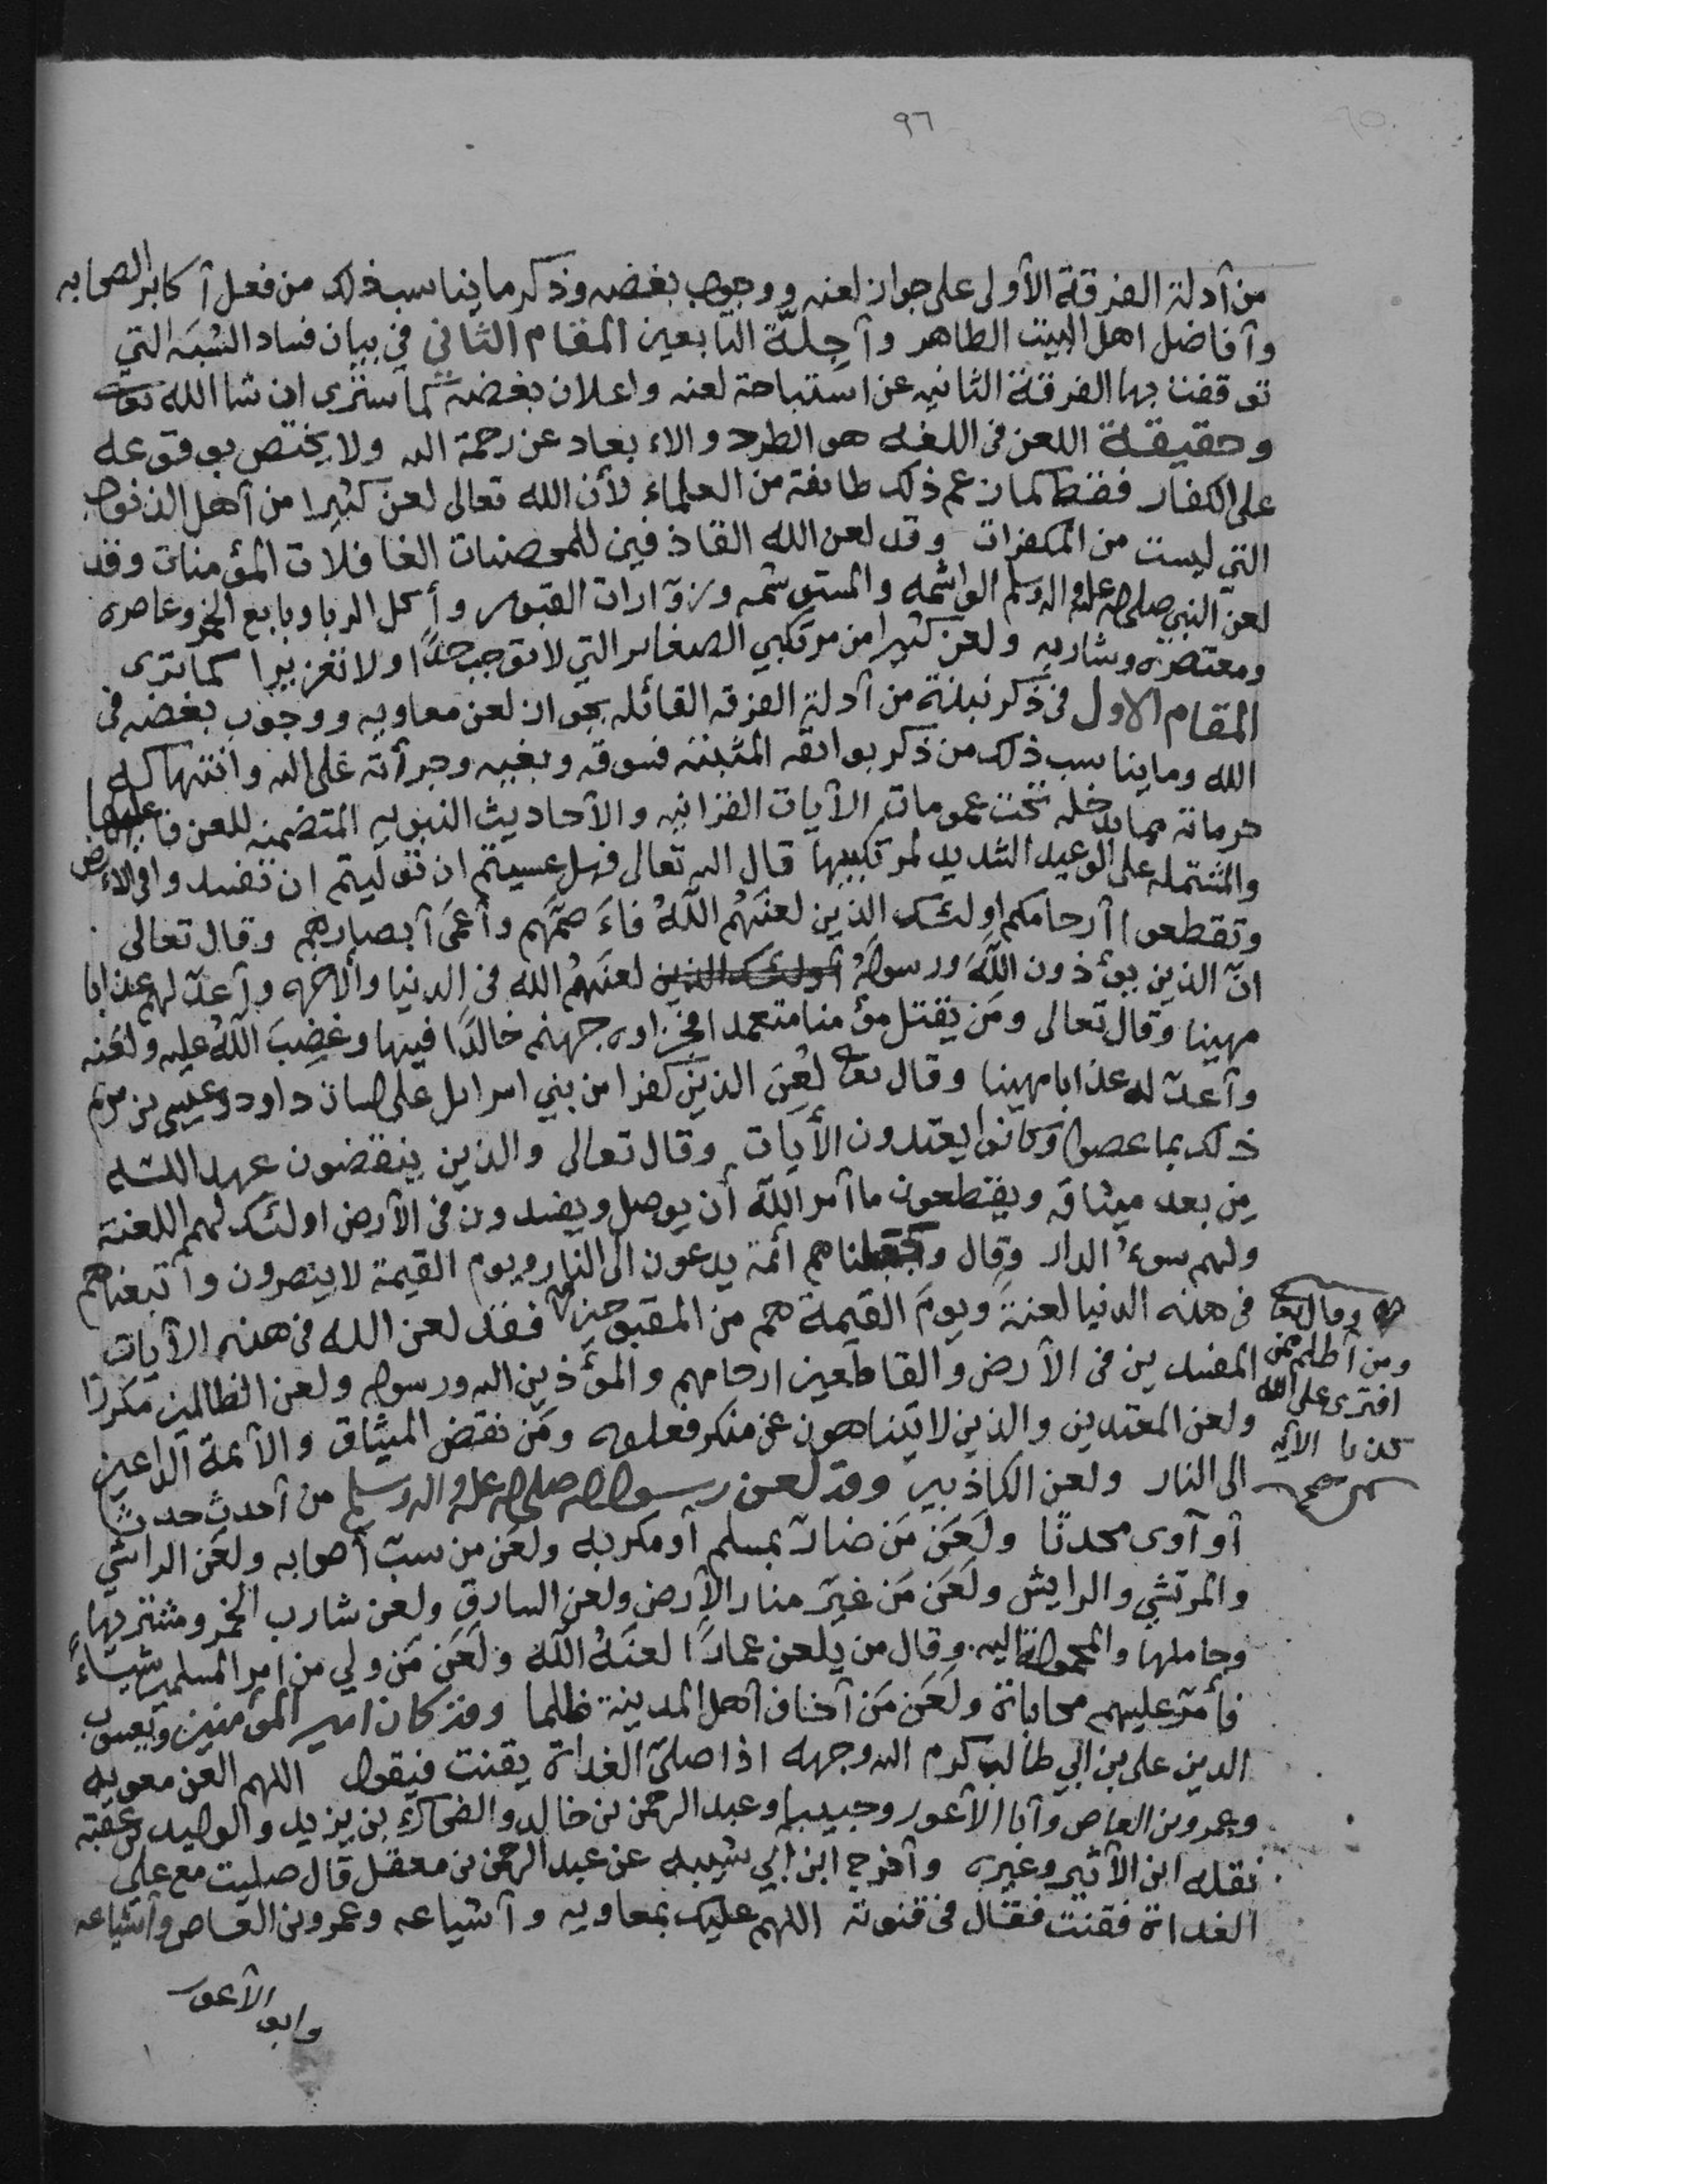 ٩٦
من أدلة الفرقة الأولى على جواز لعنه ووجوب بغضه وذكر ما يناسب ذلك من فعل أكابر الصحابه
وأفاضل اهل البيت الطاهر وأجلّة التابعين المقام الثاني في بيان فساد الشبه التي
توقفت بها الفرقة الثانيه عن استباحة لعنه واعلان بغضه كما سترى ان شا الله تعالى
وحقيقة اللعن في اللغه هو الطرد والاءبعاد عن رحمة الله ولا يختص بوقوعه
على الكفار فقط كما زعم ذلك طائفة من العلماء لأن الله تعالى لعن كثيرا من أهل الذنوب
التي ليست من المكفرات وقد لعن الله القاذفين للمحصنات الغافلات المؤمنات وقد
لعن النبي صلى الله عليه واله وسلم الواشمه والمستوشمه وزوّارات القبور وأكل الربا وبايع الخمر وعاصره
ومعتصره وشاربه ولعن كثيرا من مرتكبي الصغاير التي لا توجب حدًّا ولا تغزيرا كما ترى
المقام الاول في ذكر نبذة من أدلة الفرقه القائله بجواز لعن معاويه ووجوب بغضه في
الله وما يناسب ذلك من ذكر بوائقه المثبته فسوقه وبغيه وجرأته على الله وانتهاكه
حرماته مما يدخله تحت عمومات الآيات القرانيه والأحاديث النبويه المتضمنه للعن فاعليها
والمشتمله على الوعيد الشديد لمرتكبيها قال الله تعالى فهل عسيتم ان توليتم ان تفسدوا في الاءرض
وتقطعوا أرحامكم اولئك الذين لعنهُم اللهُ فاءَصمّهم وأعمَى أبصارهم وقال تعالى
انّ الذين يوءذون اللهَ ورسولهُ أولئك الذين لعنَهمُ الله في الدنيا والاخره وأعدّ لهم عذابا
مهينا وقال تعالى ومَن يقتل مؤمنا متعمدا فجزاوه جهنم خالدًا فيها وغضِبَ اللهُ عليه ولعَنه
وأعدّ له عذابا مهينا وقال تعالى لُعِنَ الذين كفروا من بني اسرايل على لسان داود وعيسى بن مريم
ذلك بما عصوا وكانوا يعتدون الأيات وقال تعالى والذين ينقضون عهد الله
مِن بعد ميثاقه ويقطعون ما أمر اللهُ أن يوصل ويفسدون في الأرض اولئك لهم اللعنة
ولهم سوءُ الدار وقال وجعلناهم أئمة يدعون الى النار ويوم القيمة لا ينصرون وأتبعناهم
في هذه الدنيا لعنةً ويومَ القيمة هم من المقبوحين فقد لعن الله في هذه الأيات
وقال تعالى
ومن أظلم ممن
افترى على الله
كذبا الآيه
صح
المفسدين في الأرض والقاطعين ارحامهم والمؤذين الله ورسوله ولعن الظالمين مكررا
ولعن المعتدين والذين لا يتناهون عن منكر فعلوه ومَن نقض الميثاق والأئمة الداعين
الى النار ولعن الكاذبين وقد لعن رسول الله صلى الله عليه واله وسلم من أحدث حدثا
أو آوى محدثا ولَعَن مَن ضارّ بمسلم أو مكر به ولعَن من سبّ أصحابه ولعَن الراشي
والمرتشي والرايش ولَعَن مَن غيّر منار الأرض ولعن السارق ولعن شارب الخمر ومشتريها
وحاملها والمحمولة اليه وقال من يلعن عمارًا لعنَهُ اللهُ ولَعَن مَن ولي من امر المسلمين شيئاءً
فأمّر عليهم محاباة ولَعَن مَن أخاف أهل المدينة ظلما وقد كان امير المؤمنين ويعسوب
الدين علي بن ابي طالب كرم الله وجهه اذا صلّى الغداة يقنت فيقول اللهم العن معويه
وعمرو بن العاص وأبا الأعور وحبيبا وعبد الرحمن بن خالد والضحاك بن يزيد والوليد بن عقبة
نقله ابن الأثير وغيره وأخرج ابن ابي شيبه عن عبد الرحمن بن معقل قال صليت مع علي
الغداة فقنت فقال في قنوته اللهم عليك بمعاويه وأشياعه وعمرو بن العاص وأشياعه
وابو الأعور